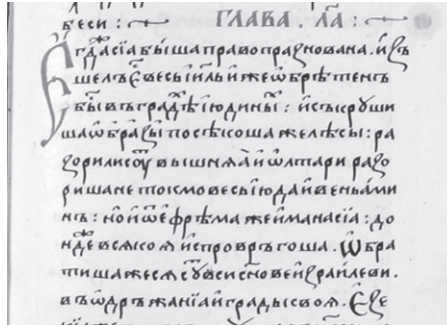 беси :
ГЛАВА . л҃а :
Е҆гда сїа быша право празнована . и҆зъ
шелъ е҆ весь ї҆иль и҆же ѡ҆брѣтенъ
бы̑ въ градѣ ї҆юдины̑ : и҆съкруши
ша ѡ҆бразы посѣкоша же лѣсы : ра
зорили соу̑ вышняа̑ и҆ ѡ҆лтари разо
риша не токмо весь ї҆юда и҆ веньами
нъ : но и҆ ѿ е҆фрѣма же и҆ манасїа : до
нде вся сїя и҆спровръгоша . Ѡ҆бра
тиша же ся су̑ вси сн҃ове и҆зраилеви .
въ ѡ҆дръжанїа и҆ грады своя . Е҆зе